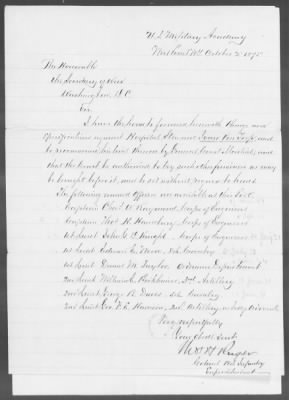 U.S. Military Academy
West Point N.Y. October 1875
The Honorable
The Secretary of War
Washington, D.C.
Sir:
I have the honor to forward herewith charges and
specifications against Hospital Steward
and
that the Court be authorized to try such other prisoners as may
be brought before it, and to sit without regard to hours
The following named officers are available at this Post
Captain Chas. W. Raymond Corps of Engineers
Captain Thos. H. Handbury Corps of Engineers
1st Lieut John G. D. Knight Corps of Engineers
1st Lieut Edward E. Wood 8th Cavalry
1st Lieut Daniel M. Taylor Ordnance Department
2nd Lieut William E. Birkhimer 3rd Artillery
2nd Lieut George R. 6th Cavalry
2nd Lieut Geo. F. E. Harrison, 2nd Artillery as Judge Advocate
Very respectfully
Your obdt servt
Thos H. Ruger
Colonel 18th Infantry
Superintendent